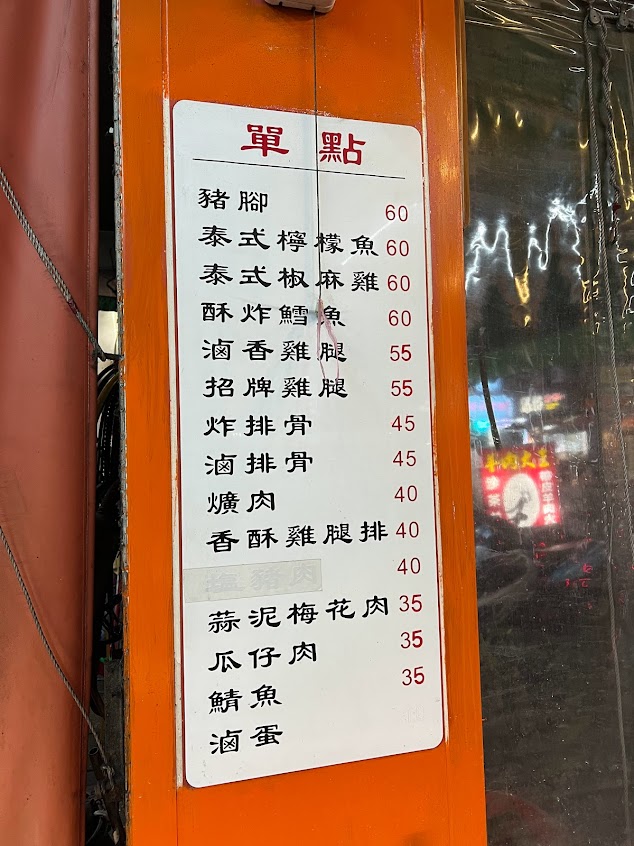 單點
豬腳 60
泰式檸檬魚 60
泰式椒麻雞 60
酥炸鱈魚 60
滷香雞腿 55
招牌雞腿 55
炸排骨 45
滷排骨 45
爌肉 40
香酥雞腿排 40
豬肉 40
蒜泥梅花肉 35
瓜仔肉 35
鯖魚 35
滷蛋
羊肉大王